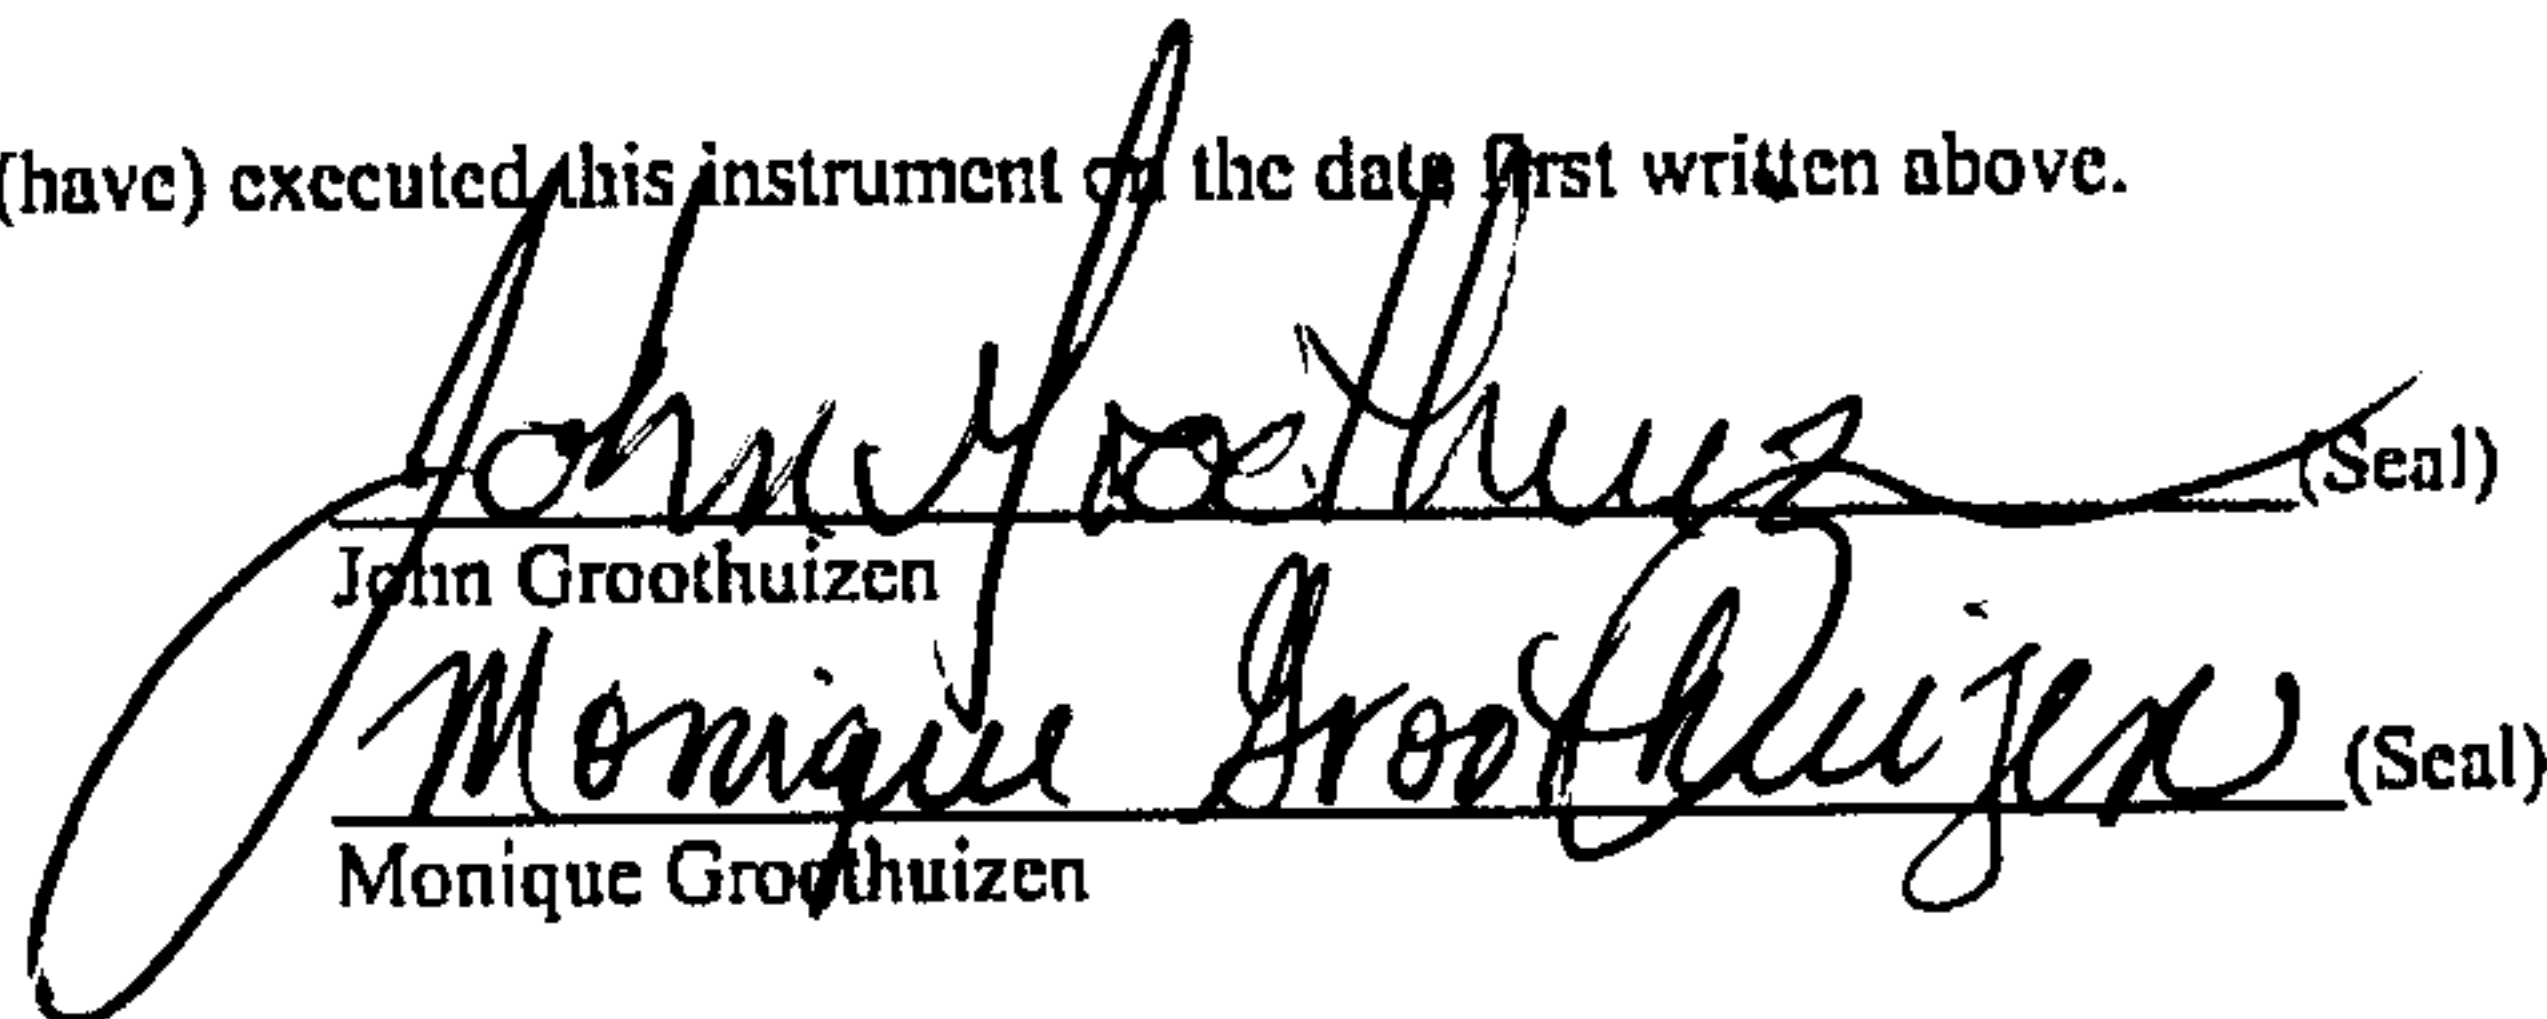 (have) executed this instrument on the date first written above.
John Groothuiz (Seal)
John Groothuizen
Monique Groothuizen (Seal)
Monique Groothuizen